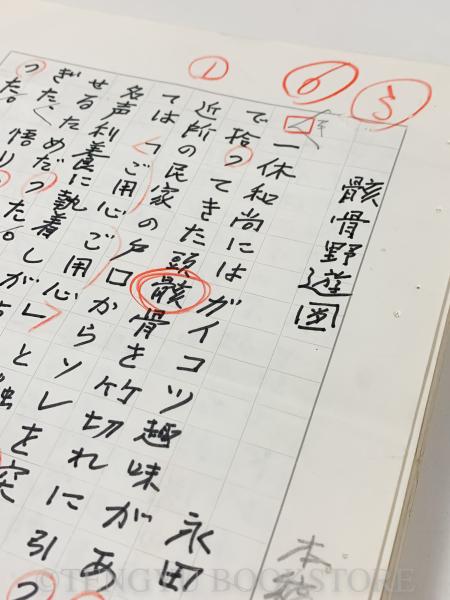 骸骨野遊図
永田
一休和尚にはガイコツ趣味があ
で拾ってきた頭骸骨を竹切れに引
近所の民家の戸口からソレを突
ては「ご用心ご用心」と
名声利養に執着しが
せるためだった。
ぎた
った。悟り
① ⑥ 5
©TENGYU BOOKSTORE